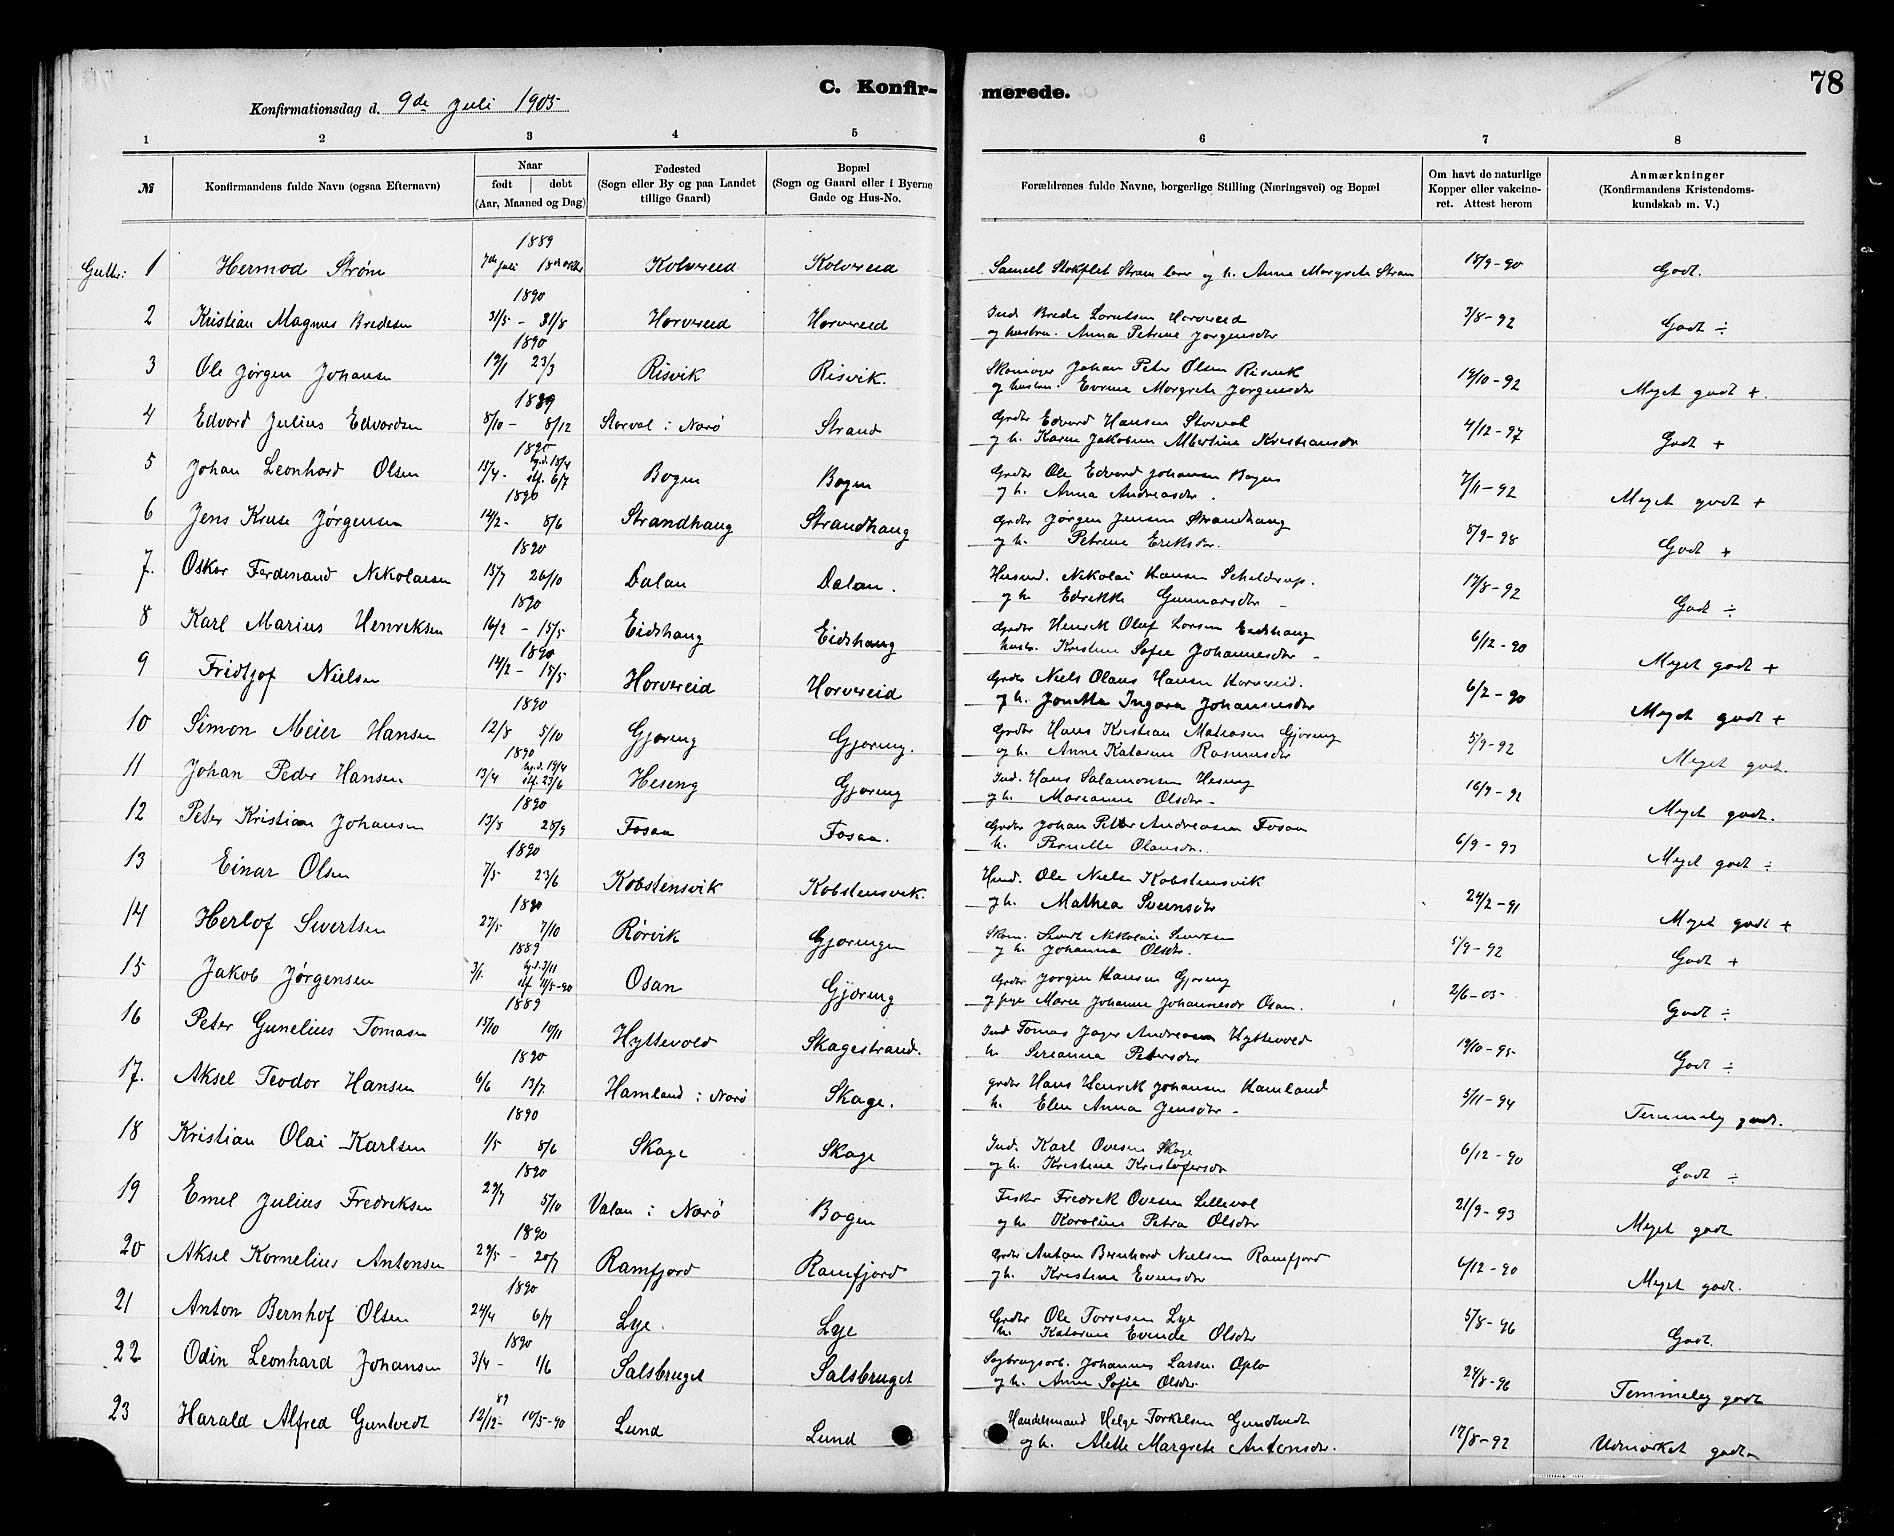 C. Konfir-
merede.
78
Konfirmationsdag d. 9de Juli 1905
1 2 3 4 5 6 7 8
№ Konfirmandens fulde Navn (ogsaa Efternavn) Naar født døbt (Aar, Maaned og Dag) Fødested (Sogn eller By og paa Landet tillige Gaard) Bopæl (Sogn og Gaard eller i Byerne Gade og Hus-No. Forældrenes fulde Navne, borgerlige Stilling (Næringsvei) og Bopæl Om havt de naturlige Kopper eller vakcineret. Attest herom Anmærkninger (Konfirmandens Kristendomskundskab m. V.)
1889
Gutter: 1 Hermod Strøm 7de juli Kolvereid Kolvereid Samuel Stokflet Strøm og h. Anna Margrete Strøm 15/9-90 Godt.
1890
2 Kristian Magnus Bredesen 31/5 - 31/8 Horvereid Horvereid Ind. Brede Lorntsen Horvereid 7/8-92 Godt ÷
og hustru. Anna Petrine Jørgensdtr
1890
3 Ole Jørgen Johansen 19/1 23/3 Risvik Risvik. Johan Peter Olsen Risvik 14/10-92 Meget godt +.
og hustru. Margrete Jørgensdtr
1889
4 Edvard Julius Edvardsen 8/10 - 8/12 Storval i Nærø Strand Grdbr Edvard Hansen Storval 4/12-97 Godt +
og h. Karen Jakobine Albertine Kristiansdtr
1890
5 Johan Leonhard Olsen 13/4- hj.d. 13/4 stf. 6/7 Bogen Bogen Grdbr Ole Edvard Johansen Bogen 7/11-92 Meget godt +
og h. Anna Andreasdtr.
1890
6 Jens Kruse Jørgensen 14/2- 8/6 Strandhaug Strandhaug Grdbr Jørgen Jensen Strandhaug 8/9-98 Godt +
og h. Petrine Eriksdtr.
1890
7. Oskar Ferdinand Nikolaisen 15/7 26/10 Dalan Dalan. Husmd. Nikolai Hansen Scheldrup. 17/8-92 Godt ÷
og h. Edrikke Gunnarsdtr -
1890
8 Karl Marius Henriksen 16/2 - 15/5 Eidshaug Eidshaug Grdbr Henrik Oluf Larsen Eidshaug 6/12-90 Meget godt +
hustr. Kristine Sofie Johannesdtr -
1890
9 Fridtjof Nielsen 14/2 - 15/5 Horvereid Horvereid Grdbr Niels Olaus Hansen Horvereid. 6/2-90 Meget godt +
og h. Jonetta Ingara Johannesdtr
1890
10 Simon Meier Hansen 12/8 5/10 Gjøreng Gjøreng. Grdbr Hans Kristian Mathiasen Gjøreng 5/9-92 Meget godt.
og h. Anne Katarine Rasmusdtr
1890
11 Johan Peder Hansen 13/4 hj.d. 14/4 stf. 23/6 Heseng Gjøreng Ind. Hans Salamonsen Heseng 16/9-92 Meget godt.
og h. Marianne Olsdtr -
1890
12 Peter Kristian Johansen 13/8 28/9 Fosaa Fosaa. Grdbr Johan Petter Andreasen Fosaa 6/9-93 Meget godt ÷
h. Pernille Olausdtr.
1890
13 Einar Olsen 7/5 23/6 Kobstensvik Kobstensvik. Husmd. Ole Nielsen Kobstensvik 24/2-91 Meget godt +
og h. Mathea Svensdtr
1890
14 Herlof Sivertsen 27/5 7/10 Rørvik Gjøringen Skom. Sivert Nikolai Sivertsen 5/9-92 Godt +
og h. Johanna Olsdtr.
1889
15 Jakob Jørgensen 3/1. hj.d. 3/11 stf 11/5-90 Osan Gjøreng Grdbr Jørgen Hansen Gjøreng 2/6-05 Godt ÷
og pige Marie Johanne Johannesdr Osan.
1889
16 Peter Gunelius Tomasen 15/10 10/11 Hyttevold Skagestrand. Ind Tomas Jager Andreasen Hyttevold 14/10-95 Godt ÷
h. Serianna Petersdtr
1890
17. Aksel Teodor Hansen 6/6 13/7. Hamland i Nærø Skage. grdbr Hans Henrik Johansen Hamland 5/11-94 Temmelig godt.
h. Elen Anna Jensdtr -
1890
18 Kristian Olai Karlsen 1/5 8/6 Skage Skage Ind. Karl Ovesen Skage 6/12-90 Godt ÷
og h. Kristine Kristofersdtr
1890
19 Emil Julius Fredriksen 29/7 5/10 Valan i Nærø Bogen Fisker Fredrik Ovesen Lilleval 21/9-93 Meget godt
og h. Karoline Petra Olsdtr
1890
20 Aksel Kornelius Antonsen 29/5 - 20/7 Ramfjord Ramfjord Grdbr Anton Bernhard Nielsen Ramfjord 6/12-90 Meget godt.
og h. Kristine Evensdtr
1890
21 Anton Bernhof Olsen 24/4 6/7 Lye. Lye Grdbr Ole Torresen Lye 5/8-96 Godt.
h. Katarina Evende Olsdtr
1890
22 Odin Leonhard Johansen 3/4 - 1/6 Salsbruget Salsbruget Sagbrugsarb. Johannes Larsen Oplø 24/8-96 Temmelig godt
og h. Anne Sofie Olsdtr
89
23 Harald Alfred Guntvedt 12/12- 10/5-90 Lund Lund Handelsmand Helge Torkelsen Gundtvedt 17/8-92 Udmerket godt
og h. Alette Margrete Antonsdtr.